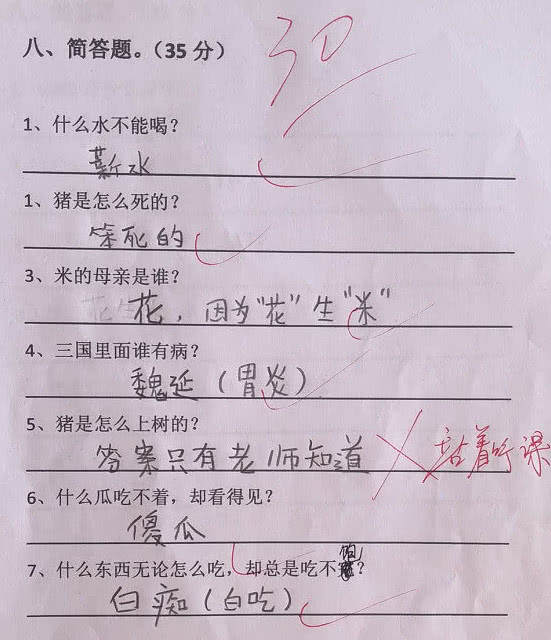 八、简答题。（35 分）
30
1、什么水不能喝？
薪水
1、猪是怎么死的？
笨死的
3、米的母亲是谁？
花，因为“花”生“米”
4、三国里面谁有病？
魏延（胃炎）
5、猪是怎么上树的？
答案只有老师知道
站着听课
6、什么瓜吃不着，却看得见？
傻瓜
7、什么东西无论怎么吃，却总是吃不饱？
白痴（白吃）